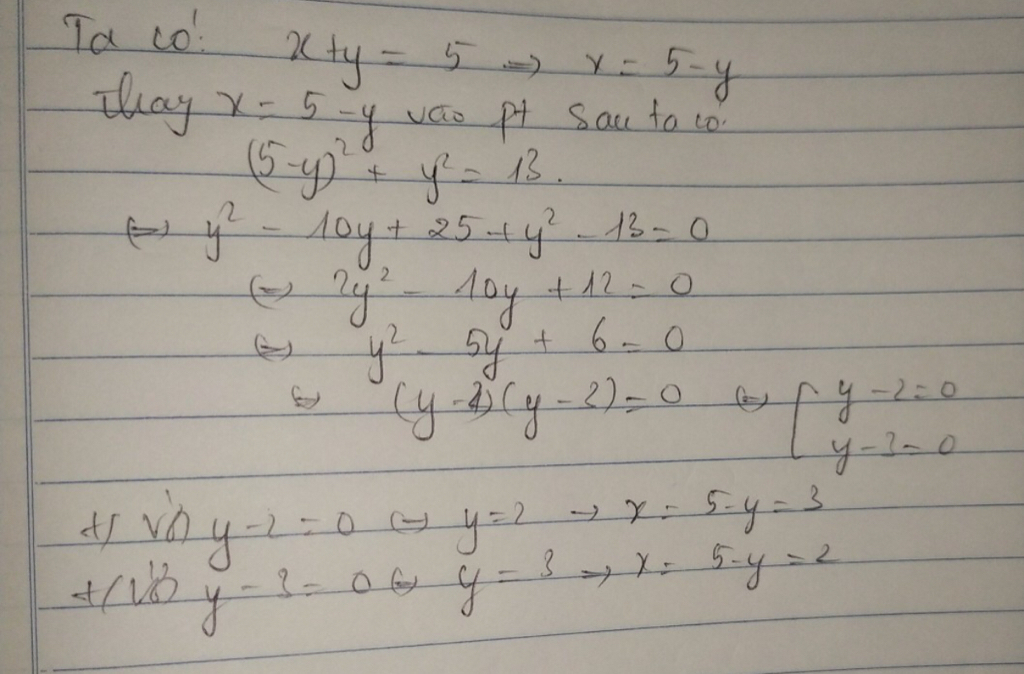 Ta có: x+y = 5 => x = 5-y
Thay x = 5-y vào pt sau ta có:
(5-y)² + y² = 13.
<=> y² - 10y + 25 + y² - 13 = 0
<=> 2y² - 10y + 12 = 0
<=> y² - 5y + 6 = 0
<=> (y-2)(y-3) = 0 <=> [ y-2=0
y-3=0
+) Với y-2=0 <=> y=2 -> x = 5-y = 3
+) Với y-3=0 <=> y=3 -> x = 5-y = 2